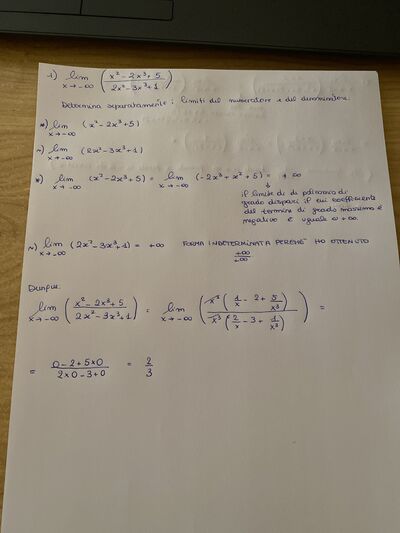 1) lim x→-∞ ( x² - 2x³ + 5 / 2x² - 3x³ + 1 )
Determina separatamente i limiti del numeratore e del denominatore:
*) lim x→-∞ (x² - 2x³ + 5)
~) lim x→-∞ (2x² - 3x³ + 1)
*) lim x→-∞ (x² - 2x³ + 5) = lim x→-∞ (-2x³ + x² + 5) = +∞
↓
il limite di di polinomio di
grado dispari il cui coefficiente
del termine di grado massimo è
negativo è uguale a +∞.
~) lim x→-∞ (2x² - 3x³ + 1) = +∞ FORMA INDETERMINATA PERCHÉ HO OTTENUTO
+∞ / +∞
Dunque:
lim x→-∞ ( x² - 2x³ + 5 / 2x² - 3x³ + 1 ) = lim x→-∞ ( x³ ( 1/x - 2 + 5/x³ ) / x³ ( 2/x - 3 + 1/x³ ) ) =
= 0 - 2 + 5×0 / 2×0 - 3 + 0 = 2/3